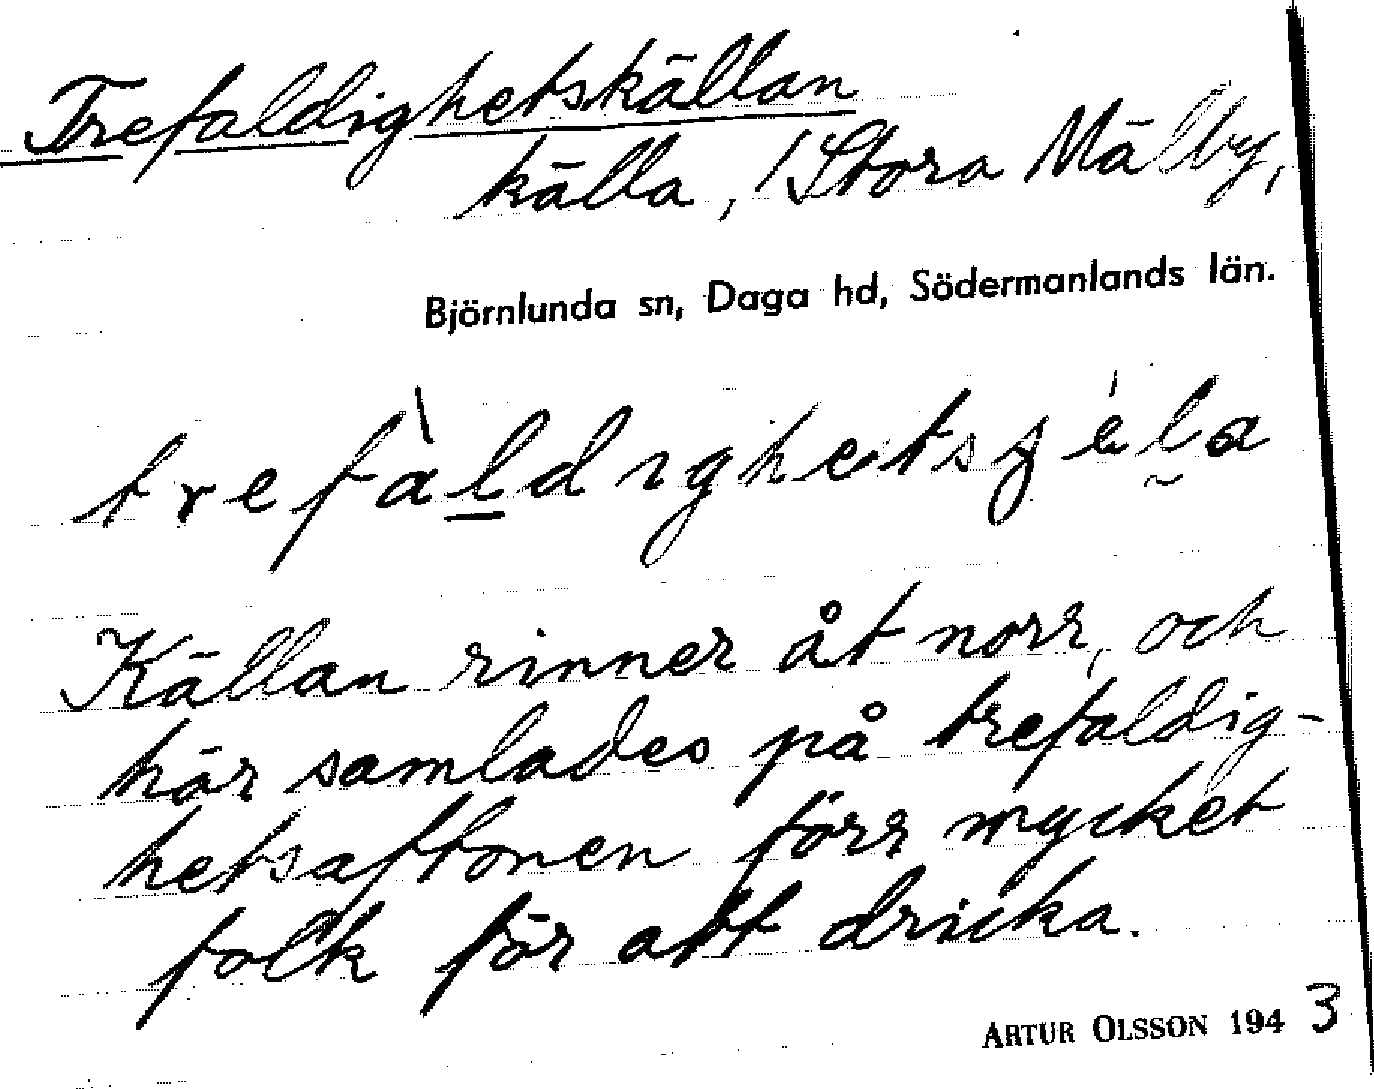 Trefaldighetskällan
källa, Stora Mälby,
Björnlunda sn, Daga hd, Södermanlands län.
trefàldighetsçéla
Källan rinner åt norr, och
här samlades på trefaldig-
hetsaftonen förr mycket
folk för att dricka.
ARTUR OLSSON 1943